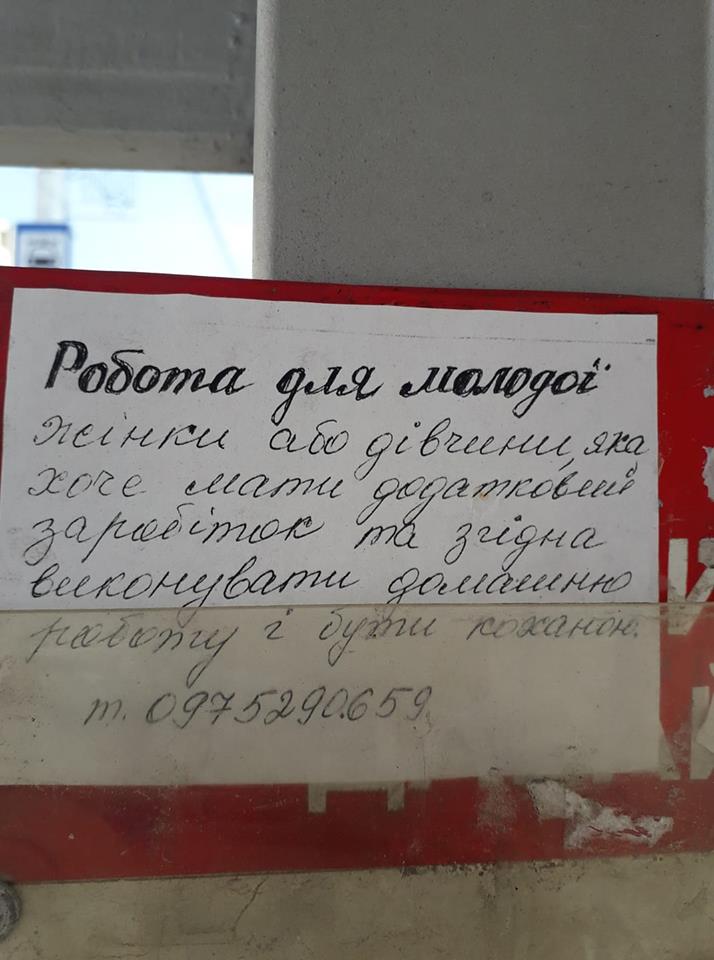 Робота для молодої
жінки або дівчини, яка
хоче мати додатковий
заробіток та згідна
виконувати домашню
роботу і бути коханою.
т. 0975290659.